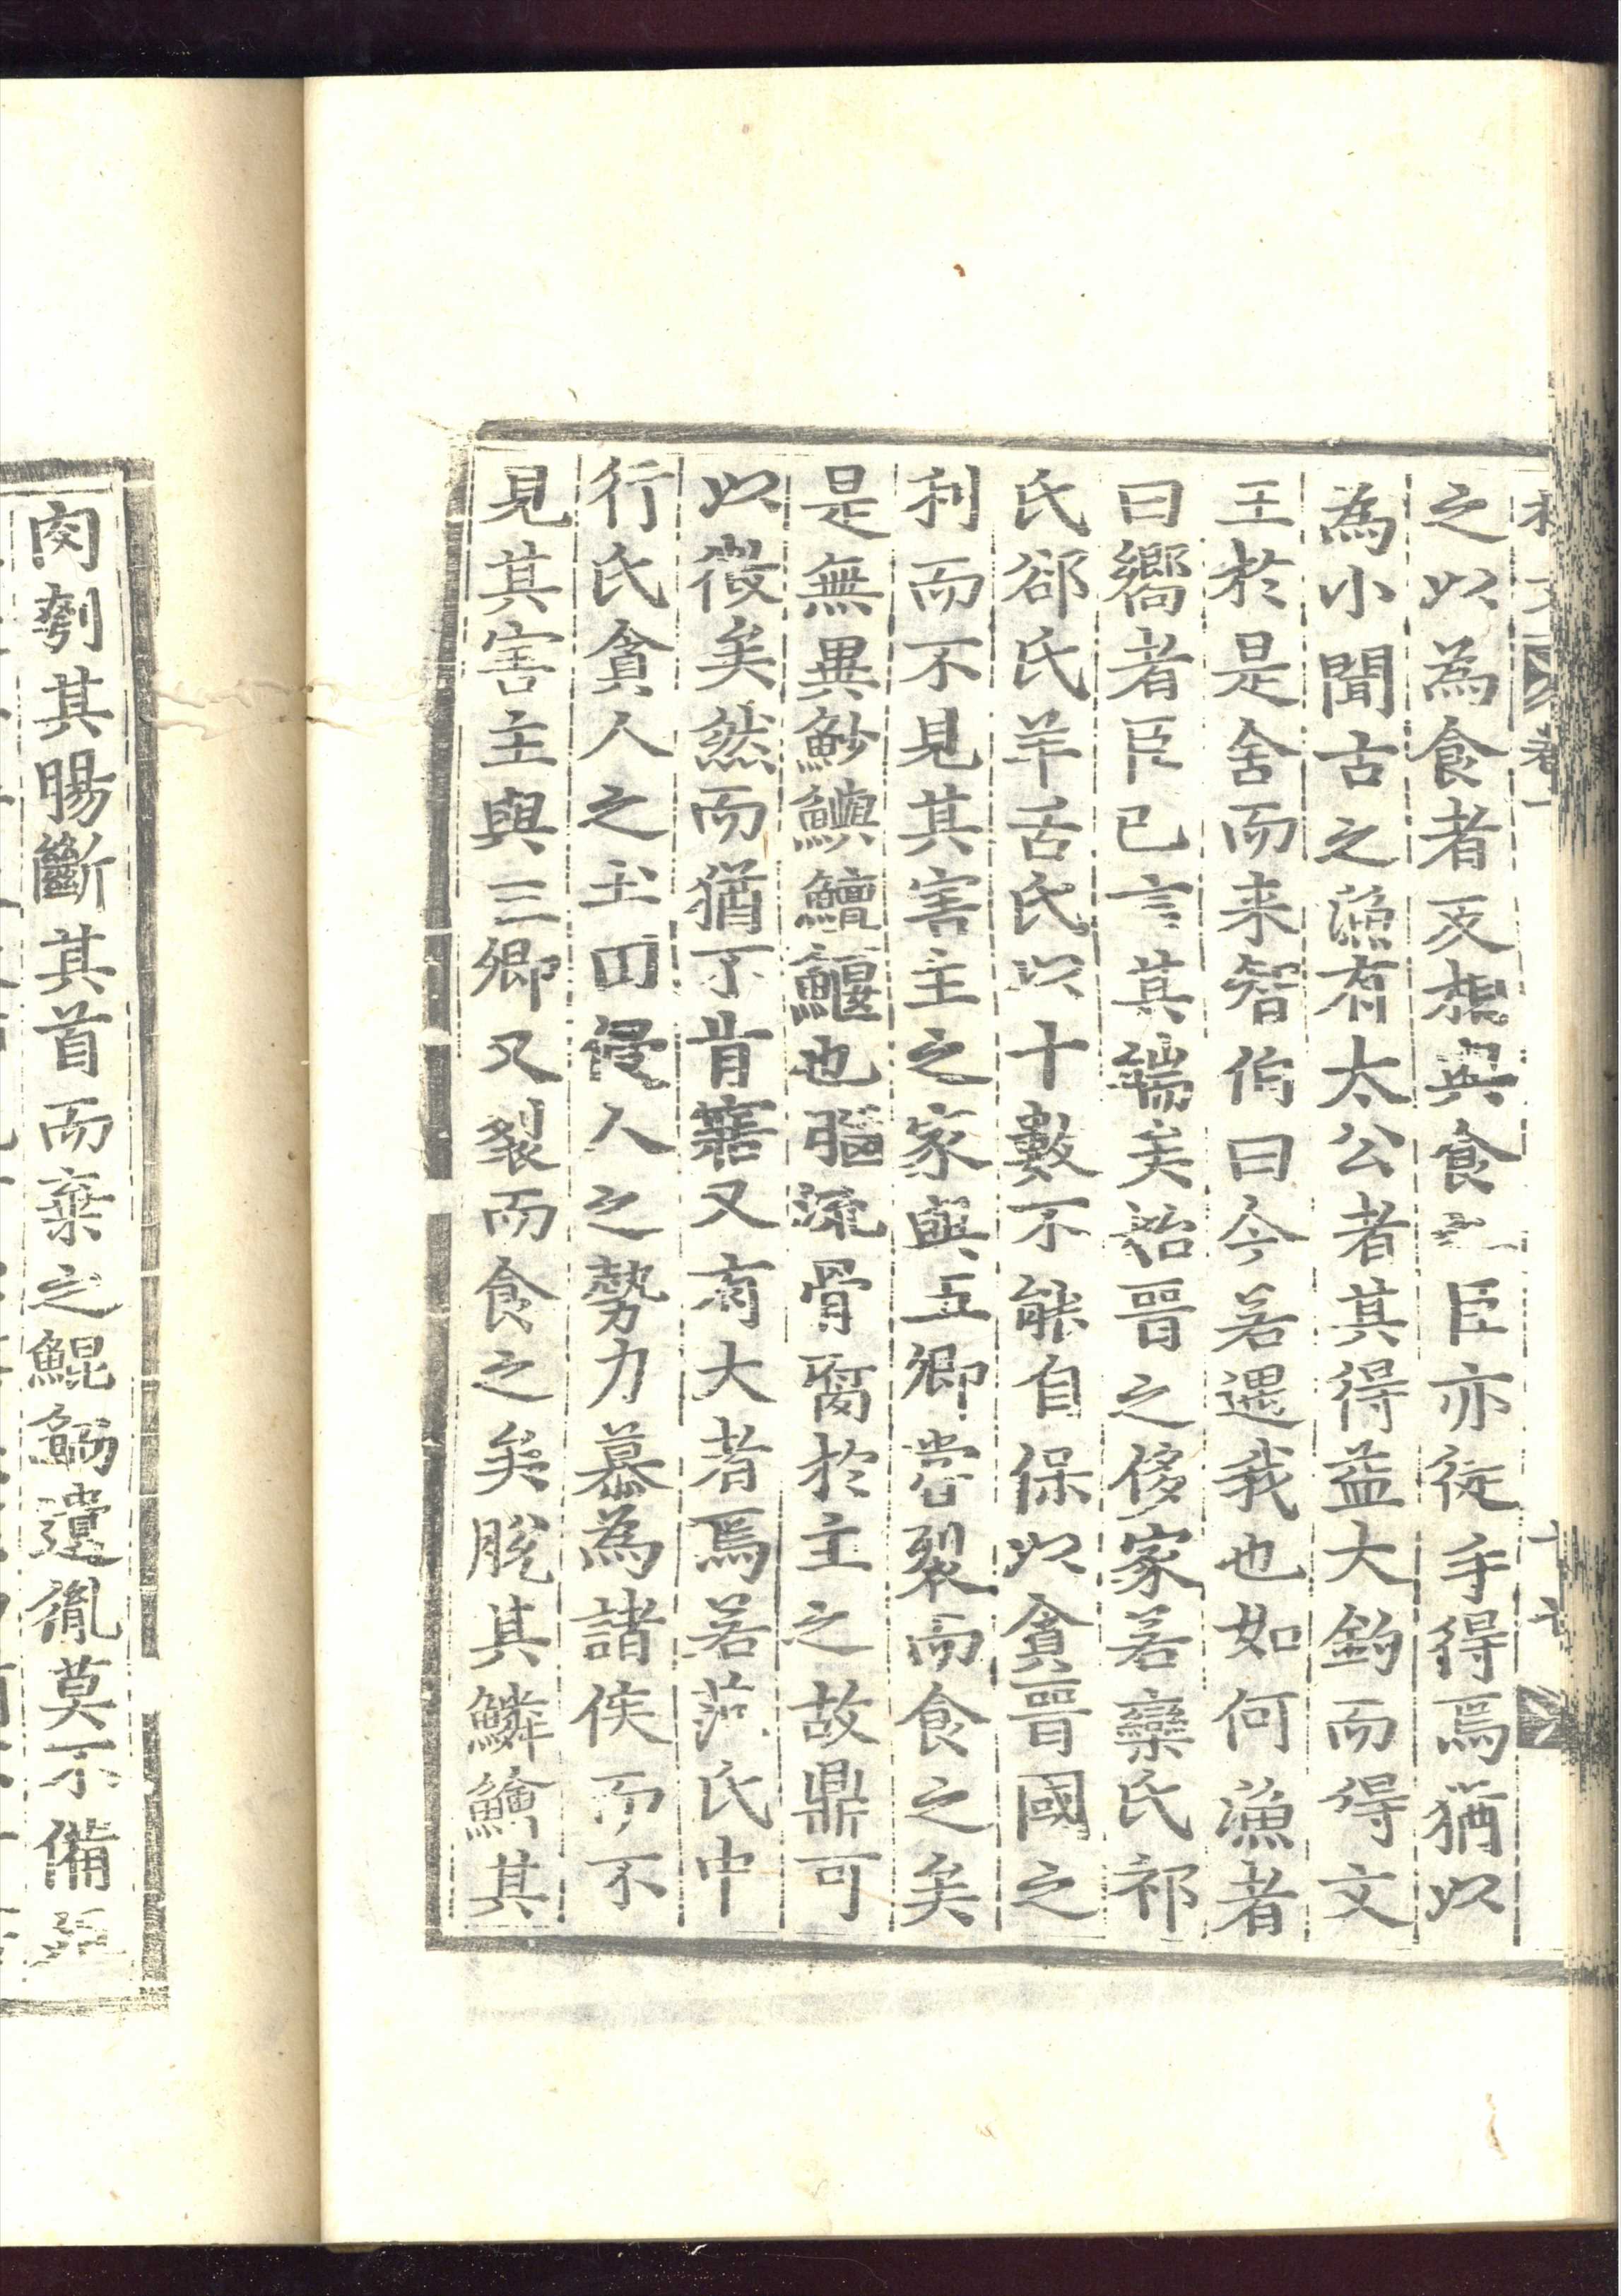 之以爲食者及相與食之臣亦徒手得焉猶以
為小聞古之漁有太公者其得益大鈎而得文
王於是舍而来智伯曰今若遇我也如何漁者
曰嚮者臣已言其端矣始晉之侈家若欒氏祁
氏郤氏羊舌氏以十數不能自保以貪晉國之
利而不見其害主之家與五卿嘗裂而食之矣
是無異魦鱮鱣鰋也腦流骨腐於主之故鼎可
以徴矣然而猶不肯寤又有大者焉若范氏中
行氏貪人之土田侵人之勢力慕為諸侯而不
見其害主與三卿又裂而食之矣脫其鱗鱠其
肉刳其腸斷其首而棄之鯤鮞遺胤莫不備